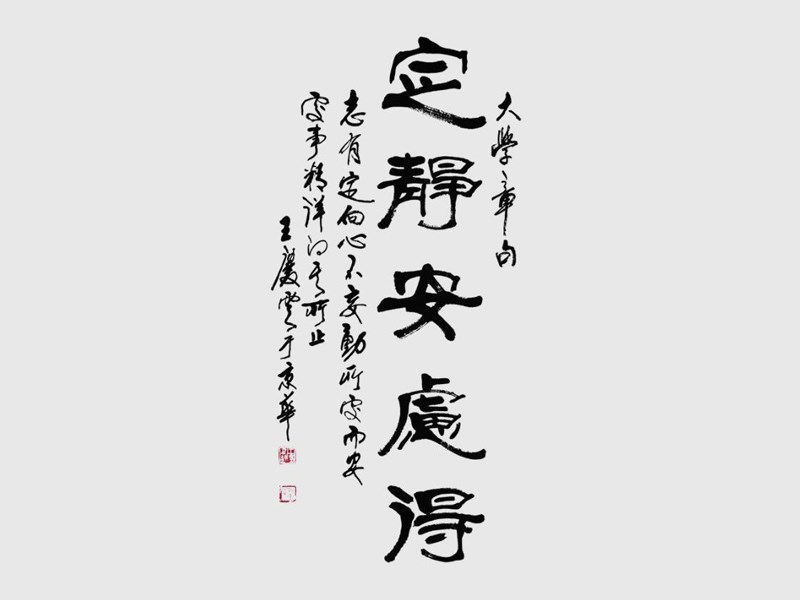 大學章句
定靜安慮得
志有定向心不妄動所處而安
處事精詳得其所止
王慶雲于京華